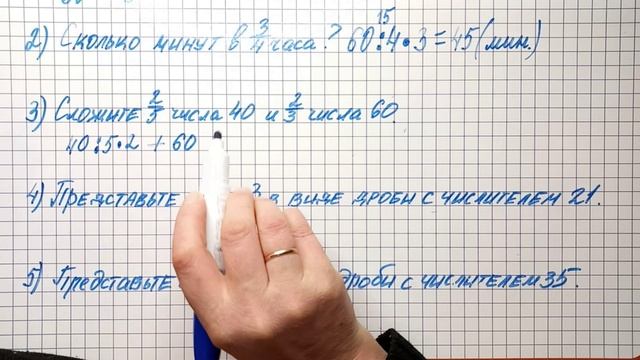 2) Сколько минут в 3/4 часа? 60:4•3=45(мин.)
15
3) Сложите 2/5 числа 40 и 2/3 числа 60.
40:5•2 + 60
4) Представьте 3 в виде дроби с числителем 21.
5) Представьте дроби с числителем 35.